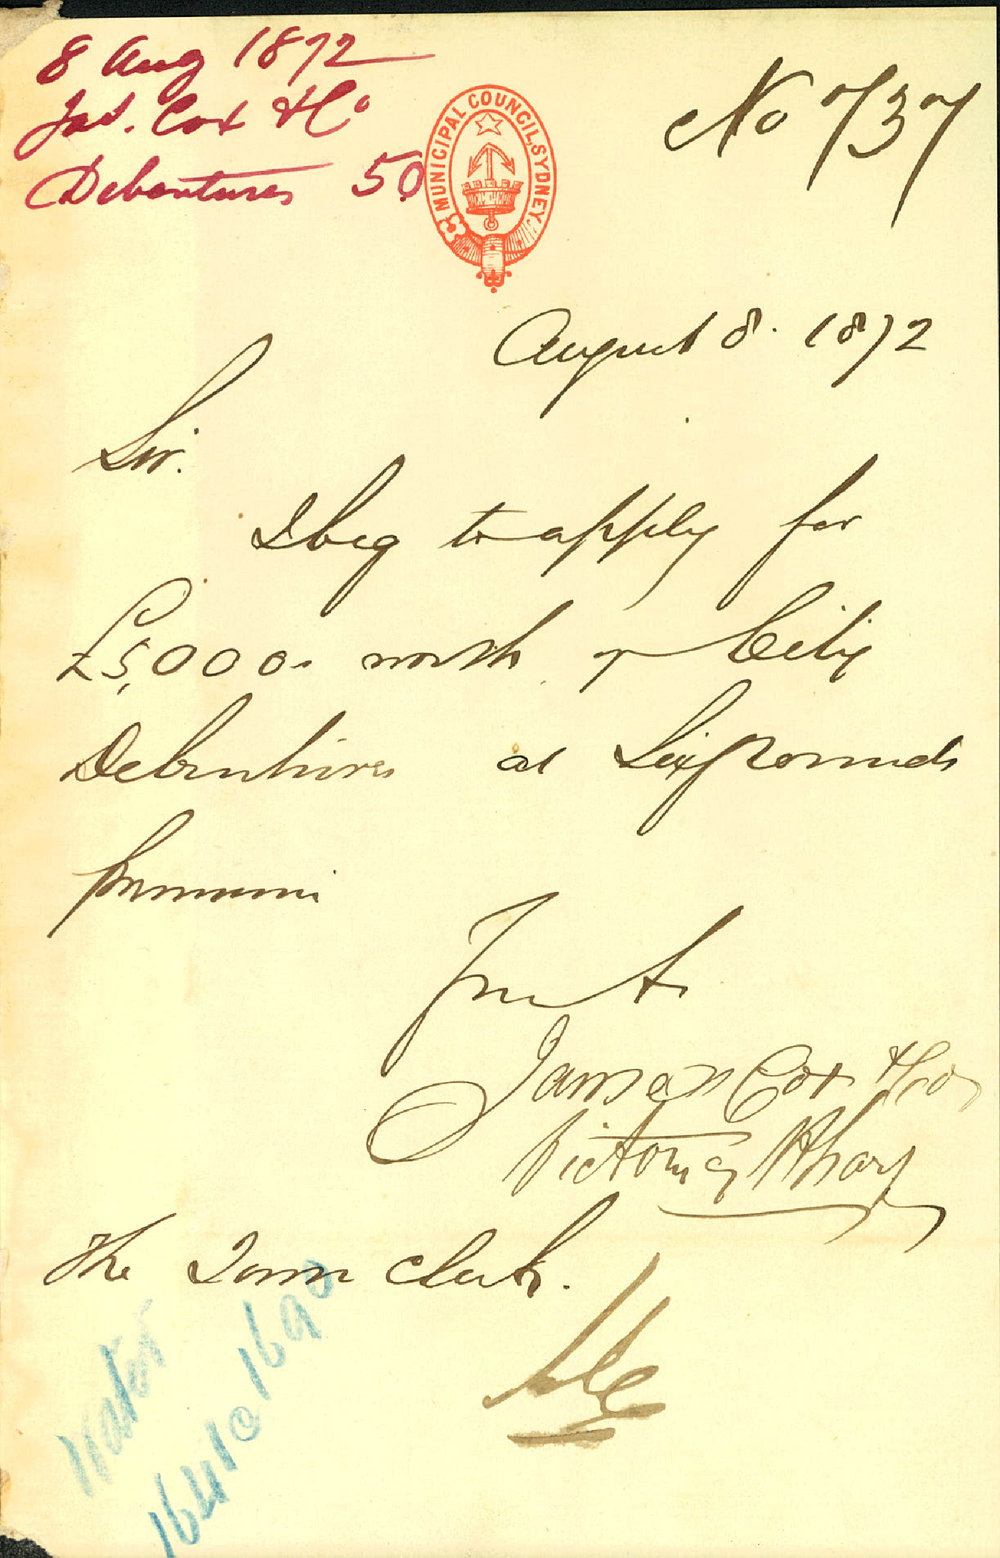 8 Aug 1872
Jas. Cox & Co
Debentures 50
MUNICIPAL COUNCIL, SYDNEY.
No 737
August 8. 1872
Sir.
I beg to apply for
£5,000. worth of City
Debentures at Six pounds
premium
James Cox & Co
Victoria Wharf
The Town Clerk.
Water
1641 to 1690